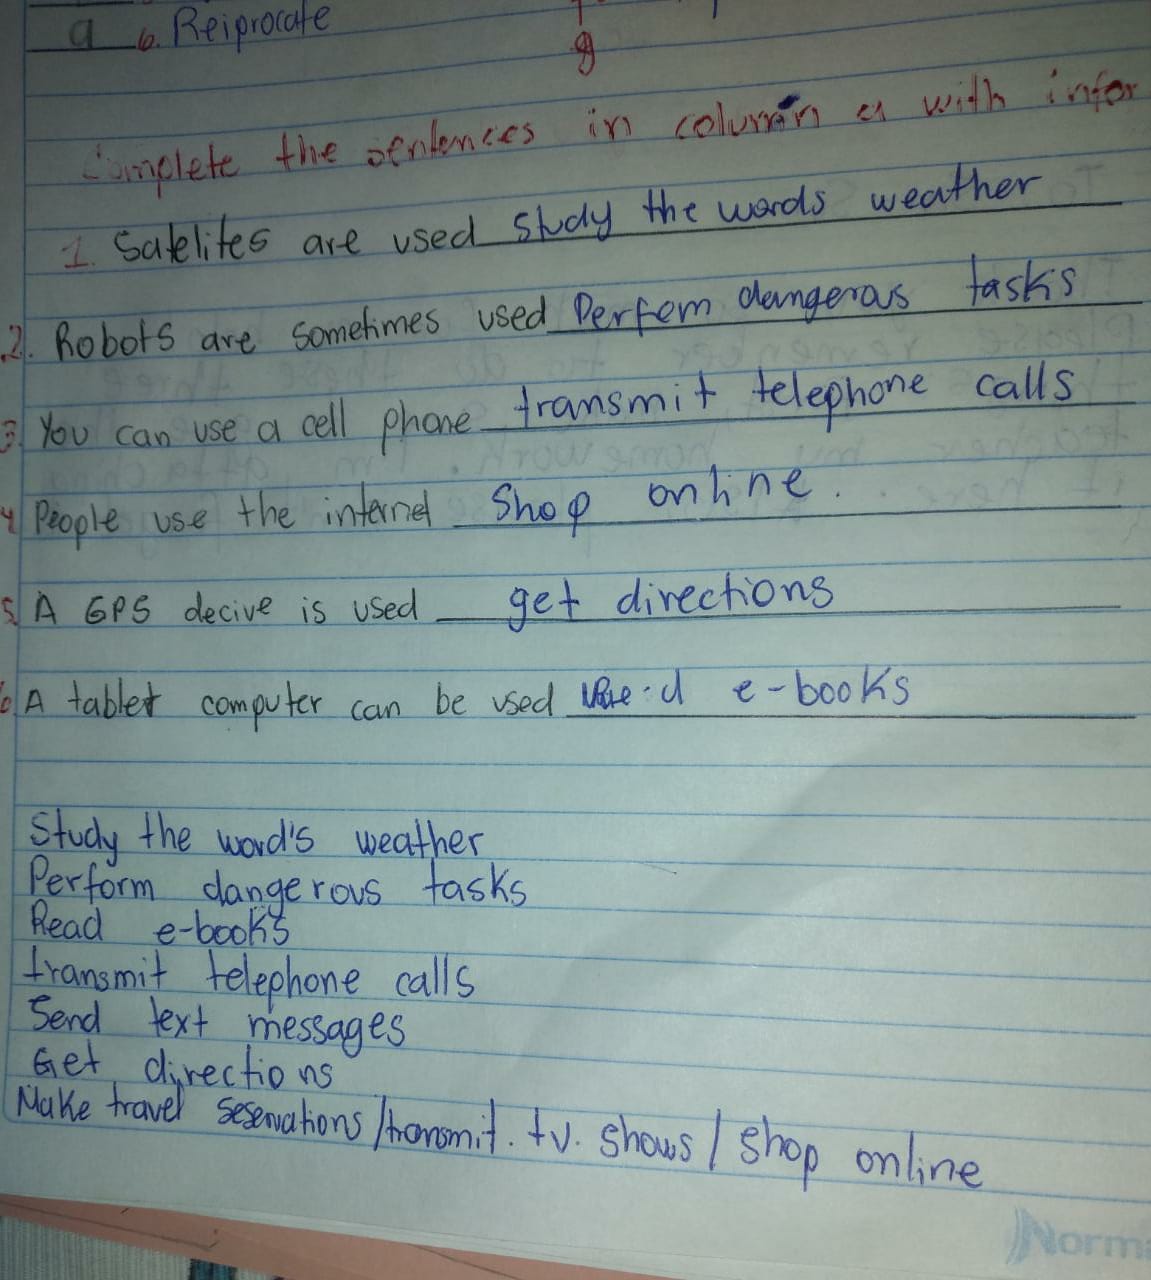 a 6. Reiprocate
g
Complete the sentences in column a with infor
1. Satelites are used study the words weather
2. Robots are sometimes used Perfom dangerous tasks
3 You can use a cell phone transmit telephone calls
4 People use the internet Shop online.
5. A GPS decive is used get directions
6 A tablet computer can be used e-books
Study the word's weather
Perform dangerous tasks
Read e-book's
transmit telephone calls
Send text messages
Get directions
Make travel seservations / transmit. tv. shows / shop online
Norma